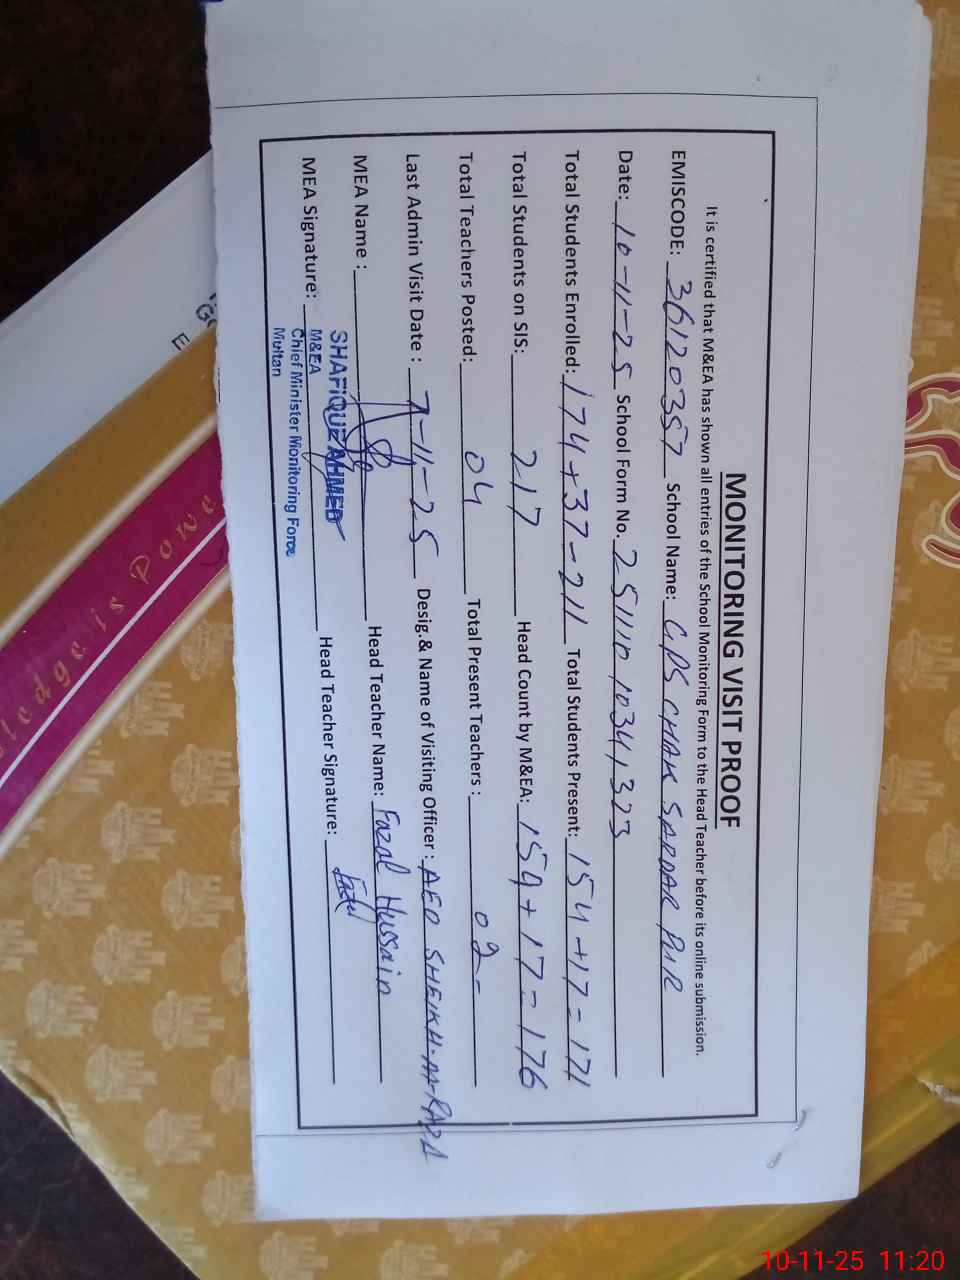 MONITORING VISIT PROOF
It is certified that M&EA has shown all entries of the School Monitoring Form to the Head Teacher before its online submission.
EMISCODE: 36120357 School Name: GPS CHAK SARDAR PUR
Date: 10-11-25 School Form No. 251110 1034,323
Total Students Enrolled: 174+37-211 Total Students Present: 154+17-171
Total Students on SIS: 217 Head Count by M&EA: 159+17-176
Total Teachers Posted: 04 Total Present Teachers : 02-
Last Admin Visit Date : 7-11-25 Desig.& Name of Visiting Officer : AEO SHEIKH-AA-RAZA
MEA Name : Head Teacher Name: Fazal Hussain
MEA Signature: Head Teacher Signature: Fazal
SHAFIQUE AHMED
M&EA
Chief Minister Monitoring Force
Multan
ledge is Powe
10-11-25 11:20